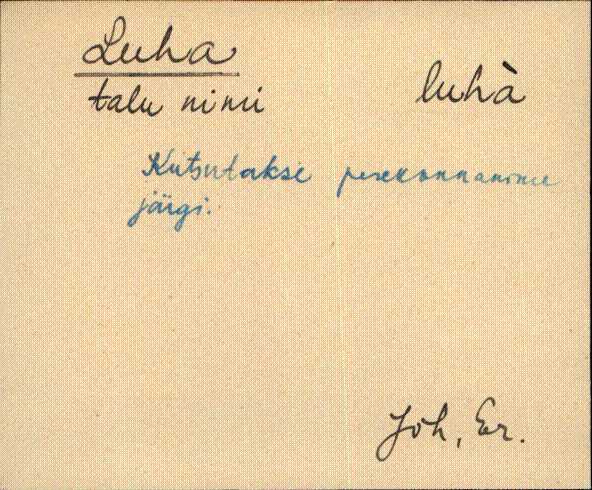 Luha
talu nimi luhà
Kutsutakse perekonnanime
järgi.
Jõh, Er.